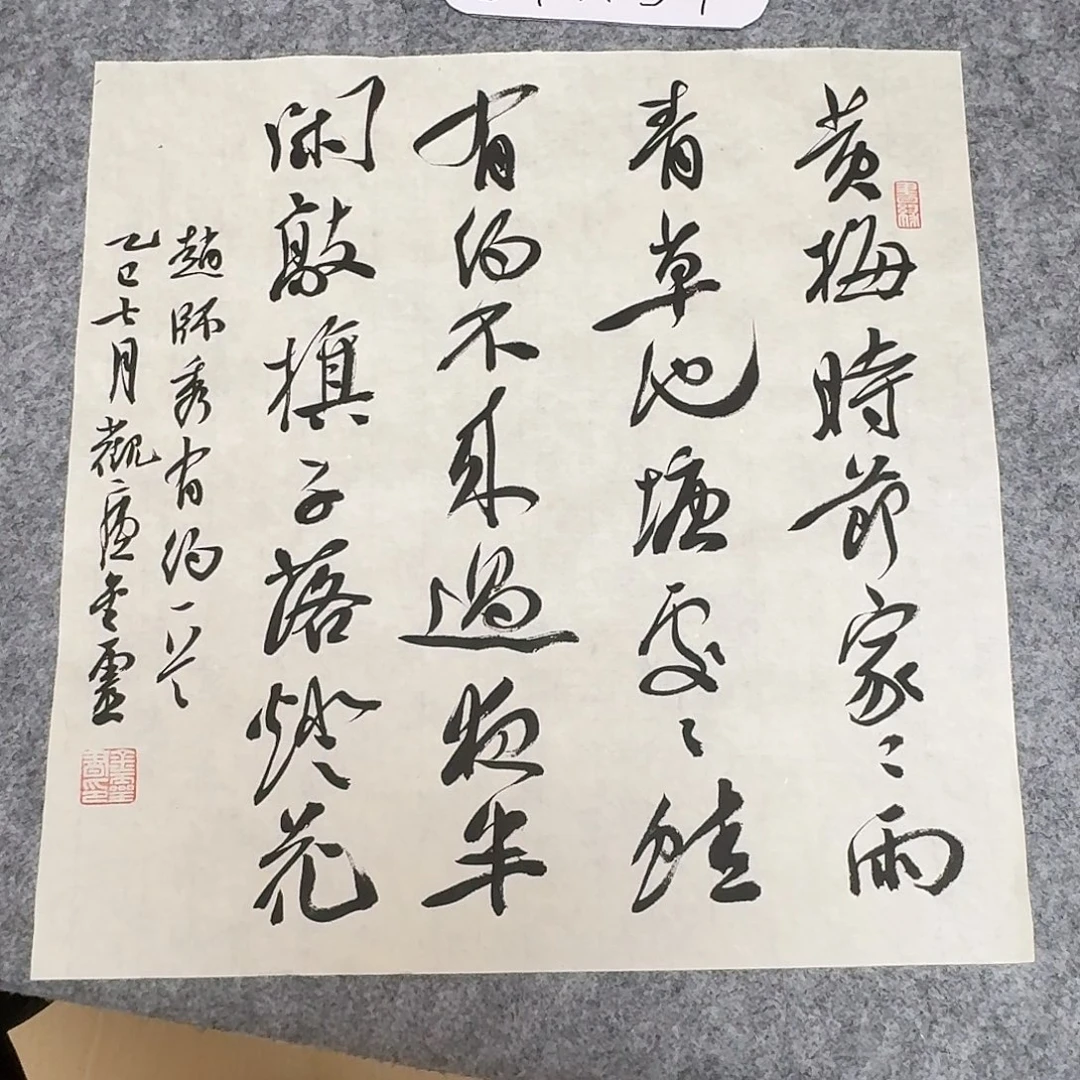 黄梅時節家々雨
青草池塘處々蛙
有約不來過夜半
閑敲棋子落燈花
趙師秀有約一首
乙巳七月觀 金靈